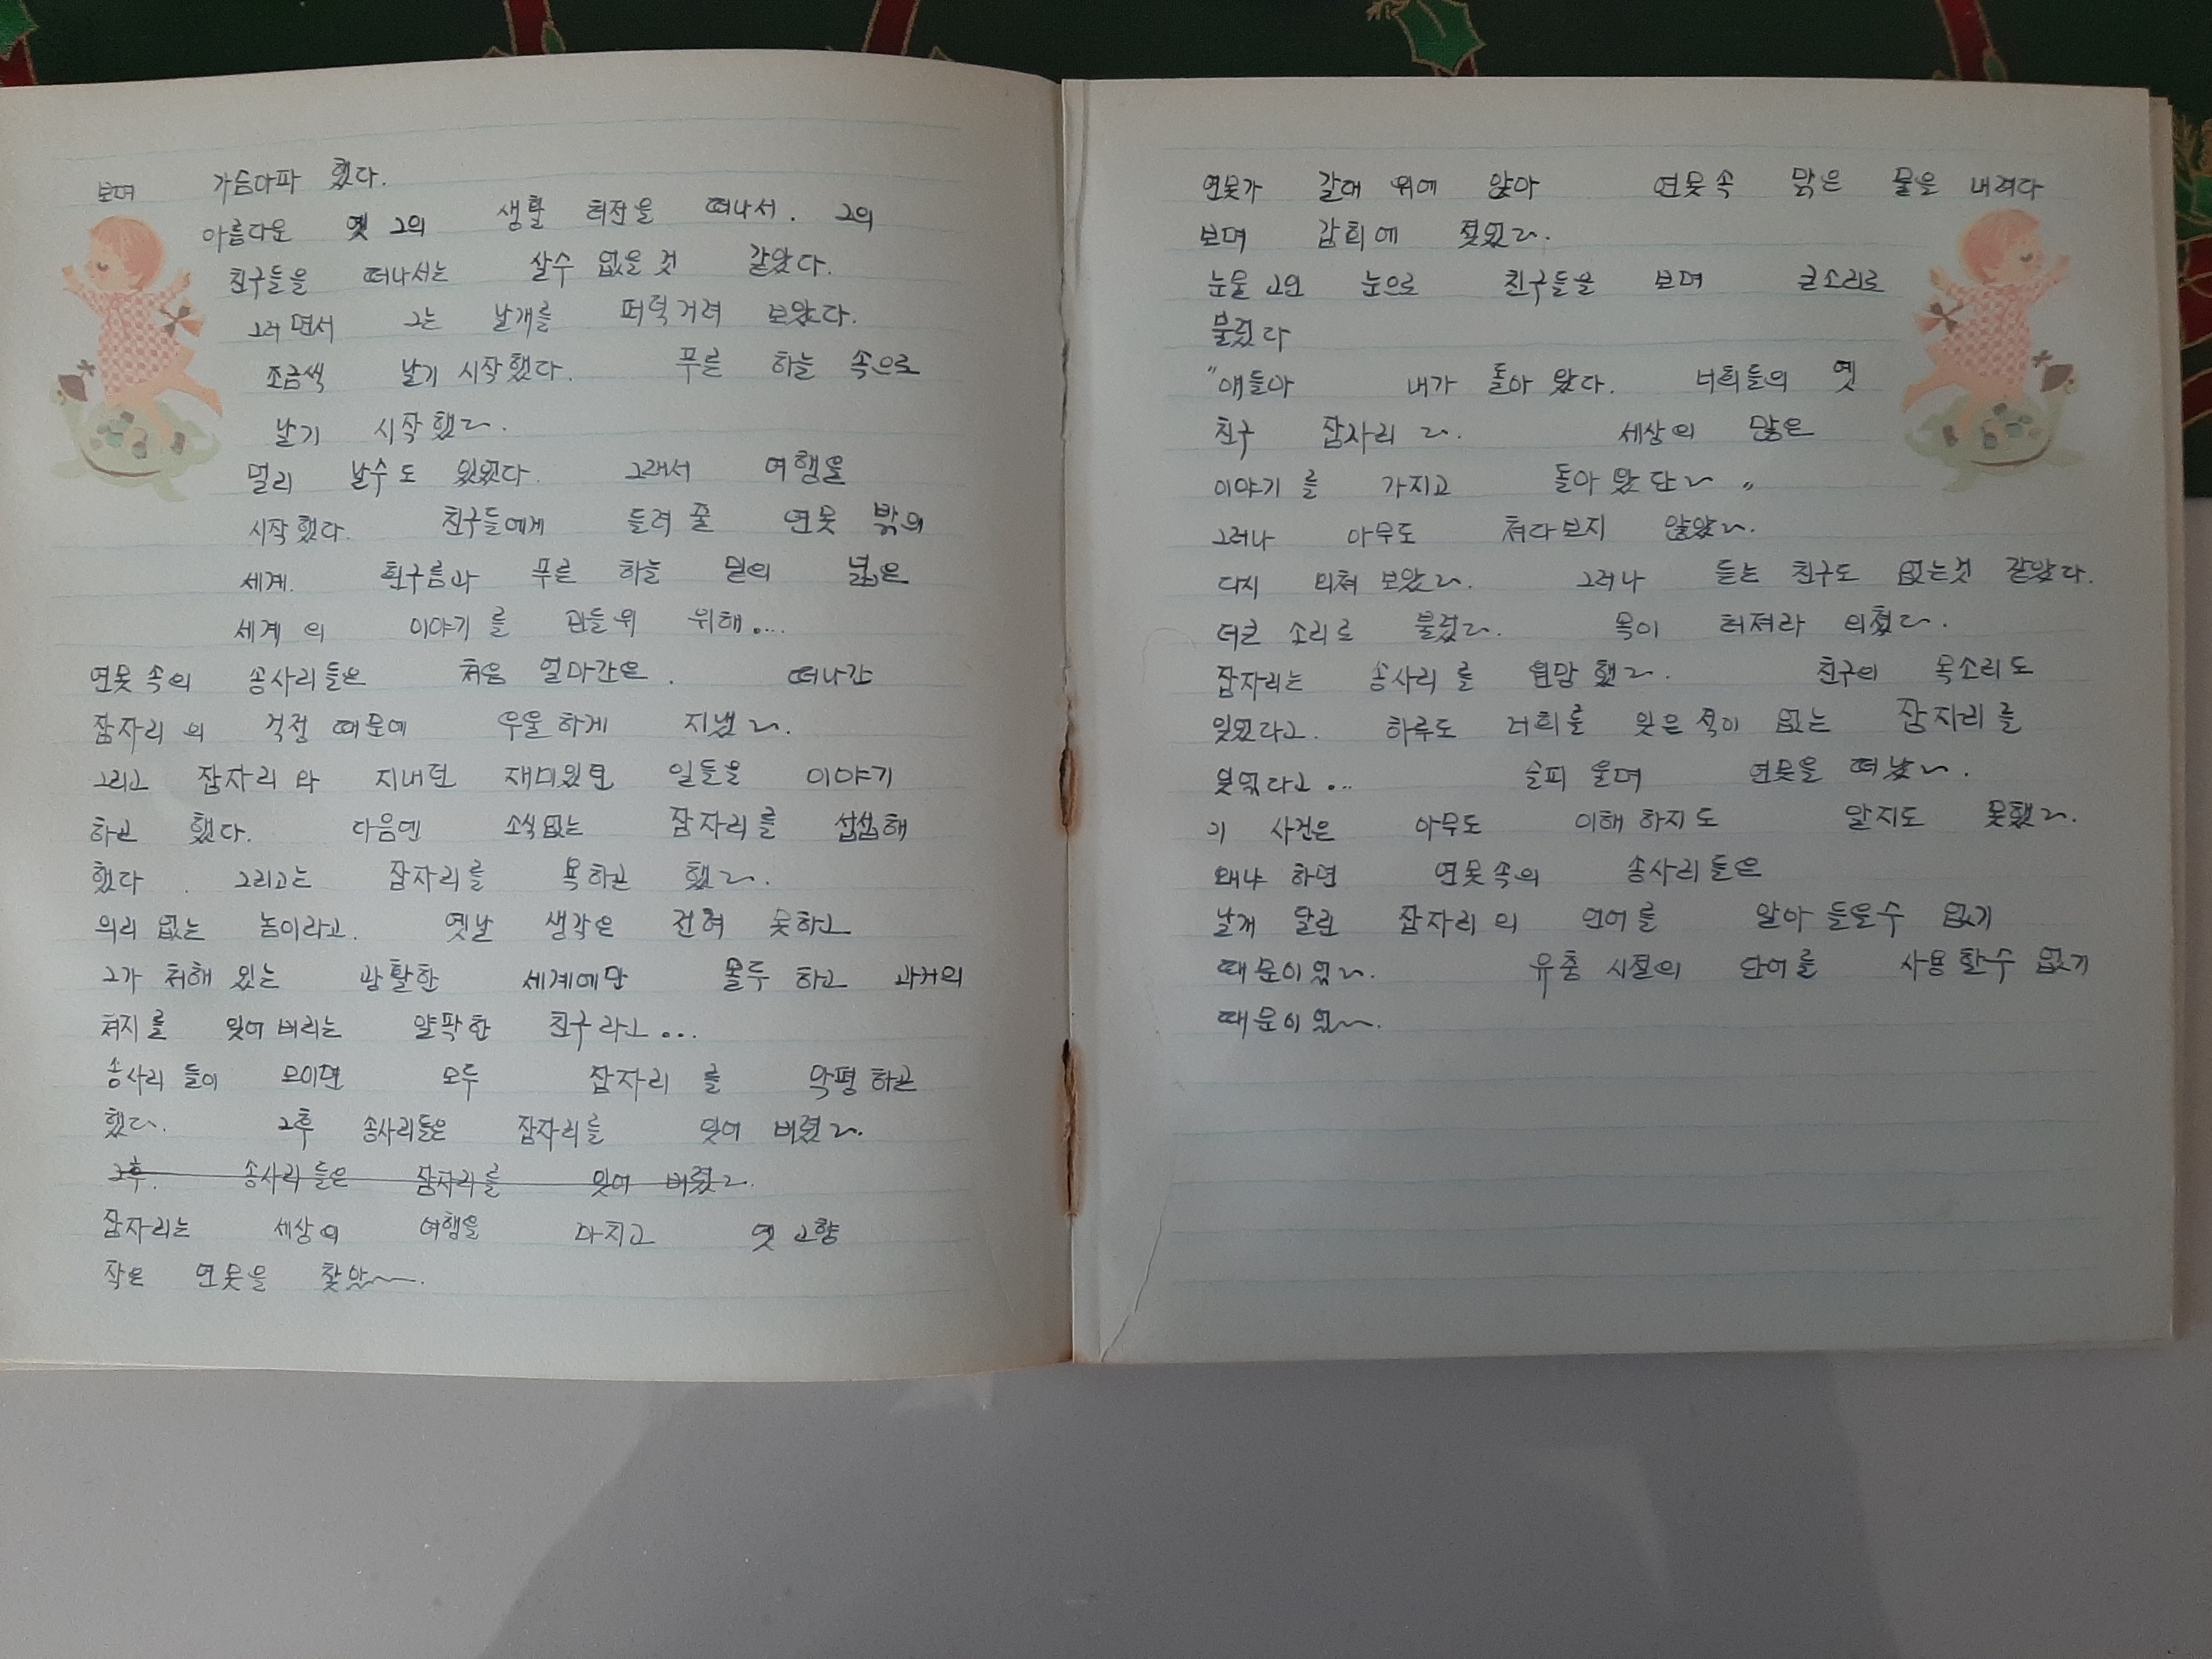 보며 가슴아파 했다.
아름다운 옛 그의 생활 터전을 떠나서. 그의
친구들을 떠나서는 살수 없을것 같았다.
그러면서 그는 날개를 퍼덕거려 보았다.
조금씩 날기 시작했다. 푸른 하늘 속으로
날기 시작했다.
멀리 날수도 있었다. 그래서 여행을
시작했다. 친구들에게 들려 줄 연못 밖의
세계. 흰구름과 푸른 하늘 밑의 넓은
세계의 이야기를 만들위 위해...
연못속의 송사리들은 처음 얼마간은. 떠나간
잠자리의 걱정 때문에 우울하게 지냈다.
그리고 잠자리와 지내던 재미있던 일들을 이야기
하곤 했다. 다음엔 소식없는 잠자리를 섭섭해
했다. 그리고는 잠자리를 욕하곤 했다.
의리 없는 놈이라고. 옛날 생각은 전혀 못하고
그가 처해 있는 광활한 세계에만 몰두 하고 과거의
처지를 잊어버리는 얄팍한 친구라고...
송사리들이 모이면 모두 잠자리를 악평하곤
했다. 그후 송사리들은 잠자리를 잊어 버렸다.
그후. 송사리들은 잠자리를 잊어 버렸다.
잠자리는 세상의 여행을 마치고 옛 고향
작은 연못을 찾았다.
연못가 갈대 위에 앉아 연못속 맑은 물을 내려다
보며 감회에 젖었다.
눈물 고인 눈으로 친구들을 보며 큰소리로
불렀다
"얘들아 내가 돌아 왔다. 너희들의 옛
친구 잠자리다. 세상의 많은
이야기를 가지고 돌아 왔단다"
그러나 아무도 쳐다보지 않았다.
다시 외쳐 보았다. 그러나 듣는 친구도 없는것 같았다.
더큰 소리로 불렀다. 목이 터져라 외쳤다.
잠자리는 송사리를 원망했다. 친구의 목소리도
잊었다고. 하루도 너희를 잊은 적이 없는 잠자리를
잊었다고... 슬피 울며 연못을 떠났다.
이 사건은 아무도 이해하지도 알지도 못했다.
왜냐 하면 연못속의 송사리들은
날개 달린 잠자리의 언어를 알아 들을수 없기
때문이었다. 유충 시절의 단어를 사용할수 없기
때문이었다.